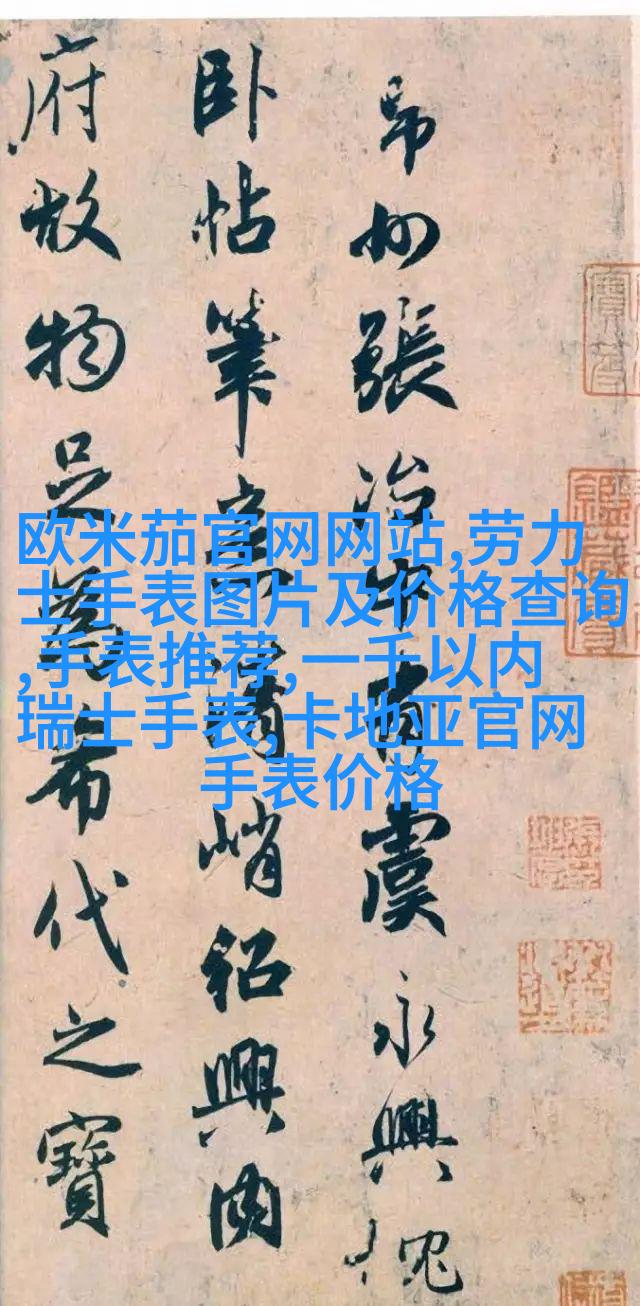 州張治中有虞永興
卧帖筆意清峭紹興内
府故物足爲希代之寶
欧米茄官网网站,劳力
士手表图片及价格查询
,手表推荐,一千以内
瑞士手表,卡地亚官网
手表价格